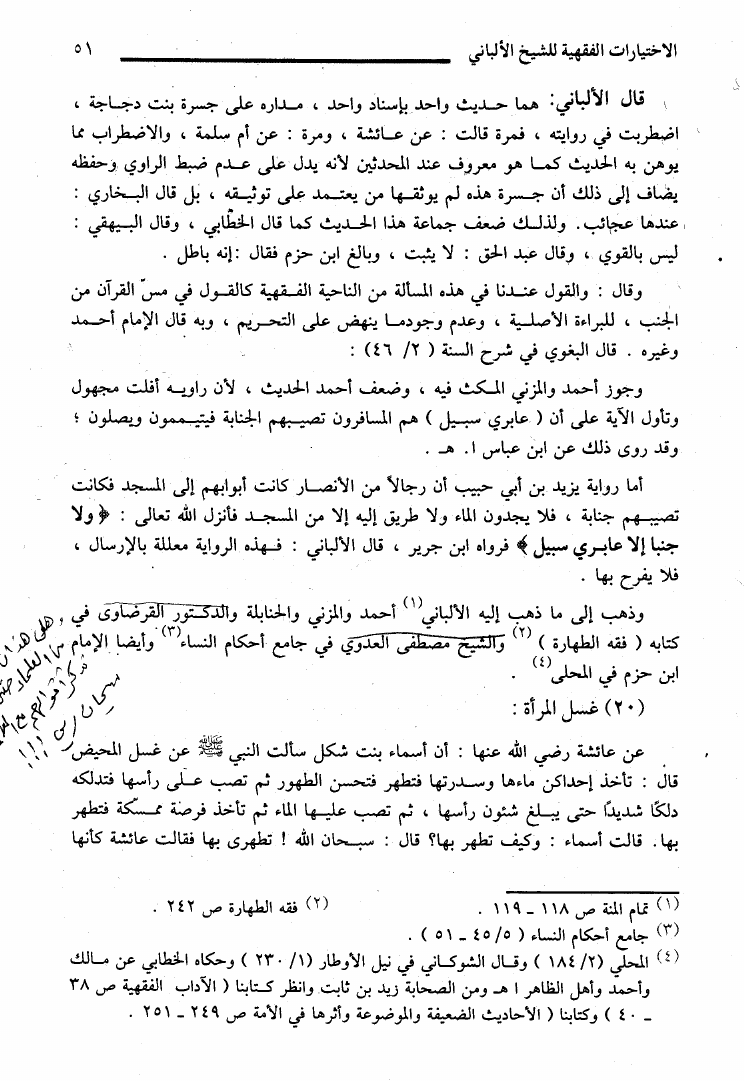 الاختيارات الفقهية للشيخ الألباني ٥١
قال الألباني: هما حديث واحد بإسناد واحد ، مداره على جسرة بنت دجاجة ،
اضطربت في روايته ، فمرة قالت : عن عائشة ، ومرة : عن أم سلمة ، والاضطراب مما
يوهن به الحديث كما هو معروف عند المحدثين لأنه يدل على عدم ضبط الراوي وحفظه
يضاف إلى ذلك أن جسرة هذه لم يوثقها من يعتمد على توثيقه ، بل قال البخاري :
عندها عجائب. ولذلك ضعف جماعة هذا الحديث كما قال الخطابي ، وقال البيهقي :
ليس بالقوي ، وقال عبد الحق : لا يثبت ، وبالغ ابن حزم فقال :إنه باطل .
وقال : والقول عندنا في هذه المسألة من الناحية الفقهية كالقول في مسّ القرآن من
الجنب ، للبراءة الأصلية ، وعدم وجودما ينهض على التحريم ، وبه قال الإمام أحمد
وغيره . قال البغوي في شرح السنة ( ٢/ ٤٦) :
وجوز أحمد والمزني المكث فيه ، وضعف أحمد الحديث ، لأن راويه أفلت مجهول
وتأول الآية على أن ( عابري سبيل ) هم المسافرون تصيبهم الجنابة فيتيممون ويصلون ؛
وقد روى ذلك عن ابن عباس ا. هـ .
أما رواية يزيد بن أبي حبيب أن رجالاً من الأنصار كانت أبوابهم إلى المسجد فكانت
تصيبهم جنابة ، فلا يجدون الماء ولا طريق إليه إلا من المسجد فأنزل الله تعالى : ﴿ ولا
جنبا إلا عابري سبيل ﴾ فرواه ابن جرير ، قال الألباني : فهذه الرواية معللة بالإرسال ،
فلا يفرح بها .
وذهب إلى ما ذهب إليه الألباني(١) أحمد والمزني والحنابلة والدكتور القرضاوى في
كتابه ( فقه الطهارة ) (٢) والشيخ مصطفى العدوي في جامع أحكام النساء(٣) وأيضا الإمام
ابن حزم في المحلى(٤) .
(٢٠) غسل المرأة :
عن عائشة رضي الله عنها : أن أسماء بنت شكل سألت النبي ﷺ عن غسل المحيض
قال : تأخذ إحداكن ماءها وسدرتها فتطهر فتحسن الطهور ثم تصب على رأسها فتدلكه
دلكًا شديدًا حتى يبلغ شئون رأسها ، ثم تصب عليها الماء ثم تأخذ فرصة ممسّكة فتطهر
بها. قالت أسماء : وكيف تطهر بها؟ قال : سبحان الله ! تطهرى بها فقالت عائشة كأنها
(١) تمام المنة ص ١١٨ - ١١٩ . (٢) فقه الطهارة ص ٢٤٢ .
(٣) جامع أحكام النساء ( ٤٥/٥ - ٥١ ) .
(٤) المحلي (١٨٤/٢ ) وقال الشوكاني في نيل الأوطار (١/ ٢٣٠ ) وحكاه الخطابي عن مالك
وأحمد وأهل الظاهر ا هـ ومن الصحابة زيد بن ثابت وانظر كتابنا ( الآداب الفقهية ص ٣٨
- ٤٠ ) وكتابنا ( الأحاديث الضعيفة والموضوعة وأثرها في الأمة ص ٢٤٩ - ٢٥١ .